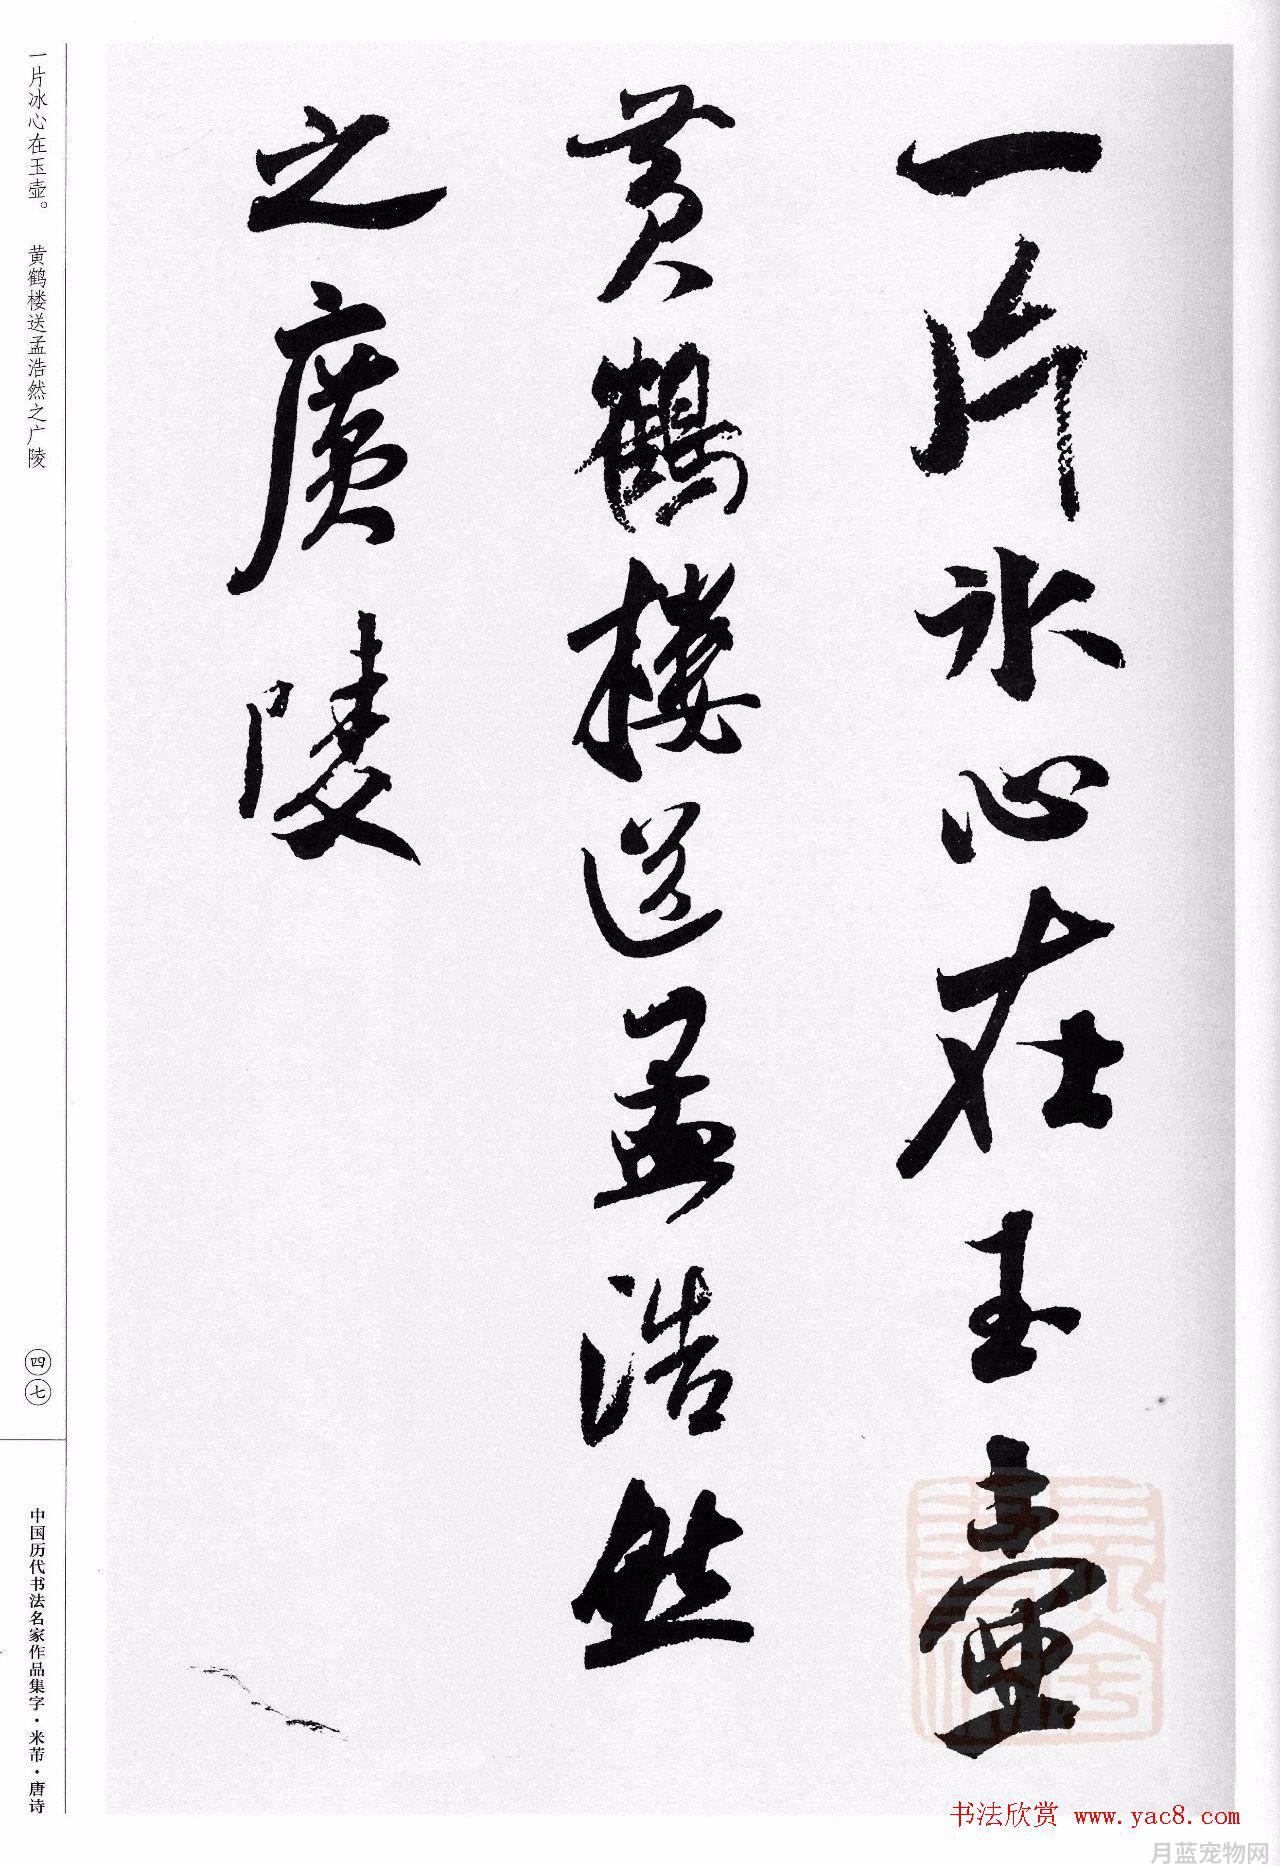 一片冰心在玉壺
黄鶴樓送孟浩然
之廣陵
一片冰心在玉壶。 黄鹤楼送孟浩然之广陵
四七
中国历代书法名家作品集字·米芾·唐诗
书法欣赏 www.yac8.com
月蓝宠物网